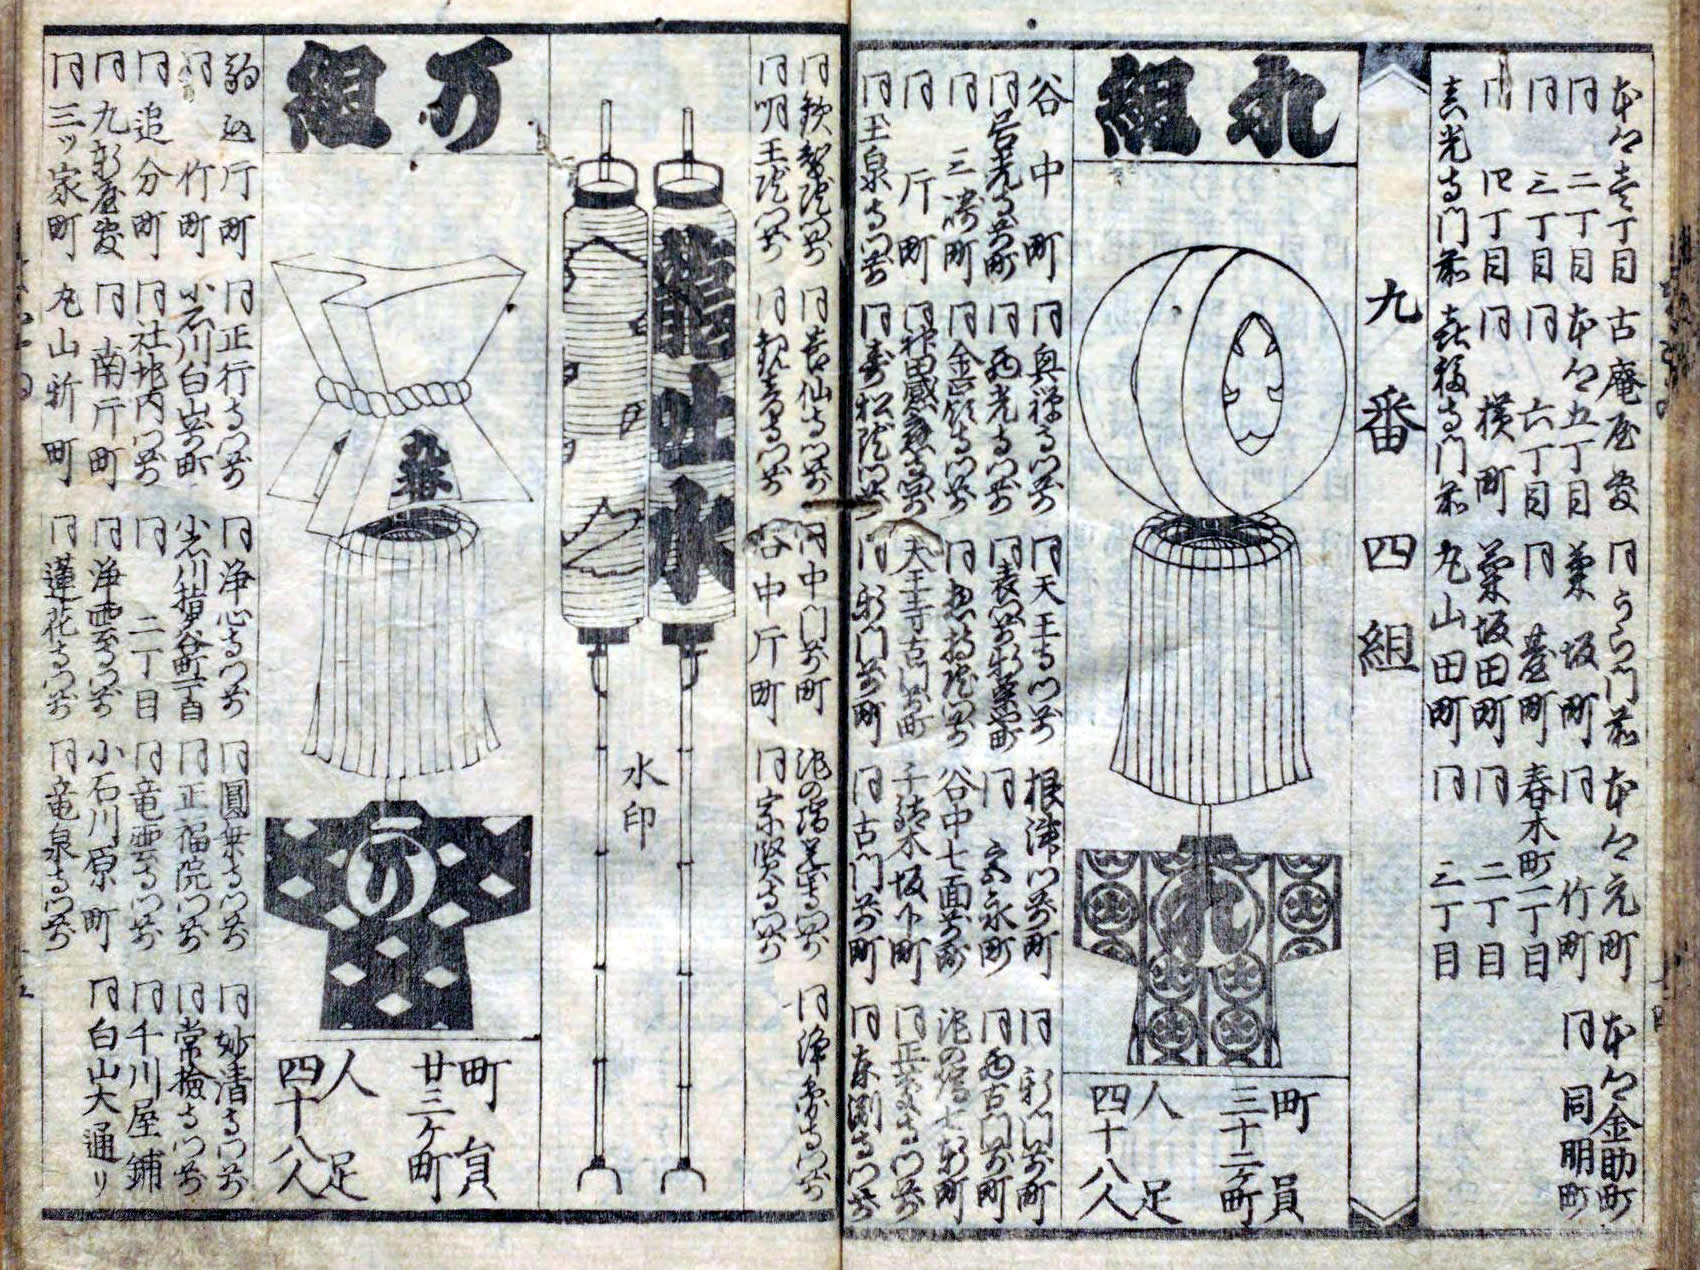 本郷壱丁目
同 二丁目
同 三丁目
同 四丁目
真光寺門前
古庵屋敷
本郷五丁目
同 六丁目
同 横町
喜福寺門前
同うら門前
菊坂町
同 臺町
菊坂田町
丸山田町
本郷元町
同 竹町
春木町一丁目
同 二丁目
同 三丁目
本郷金助町
同 同朋町
九番四組
れ組
九番
れ
町員
三十二ヶ町
人足
四十八人
谷中町
同 三崎町
同 庁町
同玉泉寺門前
同天王寺門前
天王寺古門前町
同新門前町
根津門前町
同 宮永町
谷中七面前町
千駄木坂下町
同古門前町
同 新門前町
同明王院門前
同 善仙寺門前
同中門前町
谷中庁町
同宗賢寺門前
龍吐水
水印
万組
九番
万
町員
廿三ヶ町
人足
四十八人
駒込庁町
同 竹町
同 追分町
同 九軒屋敷
同 三ッ家町
同正行寺門前
小石川白山前町
同社地内門前
同 南庁町
丸山新町
同浄心寺門前
小石川指ヶ谷町一丁目
同 二丁目
同 蓮花寺門前
同圓乗寺門前
同正福院門前
同竜雲寺門前
小石川原町
同竜泉寺門前
同妙清寺門前
同常検寺門前
同千川屋鋪
同白山大通り